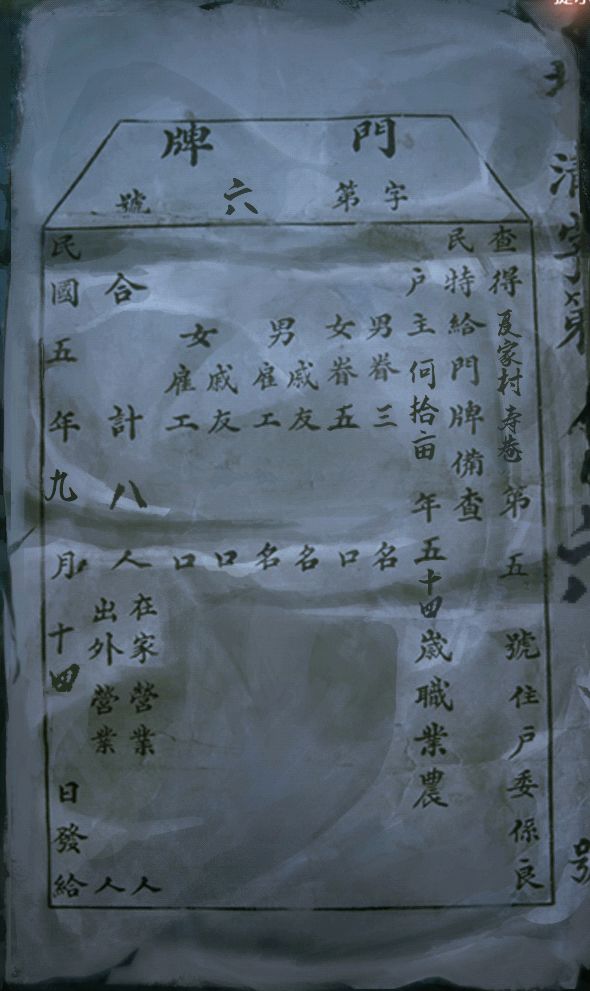 門牌
字第六號
查得夏家村寿巷第五號住戶委係良
民特給門牌備查
戶主何拾亩年五十四歲職業農
男眷三名
女眷五口
男戚友名
男雇工名
女戚友口
女雇工口
合計八人
在家營業人
出外營業人
民國五年九月十四日發給
號